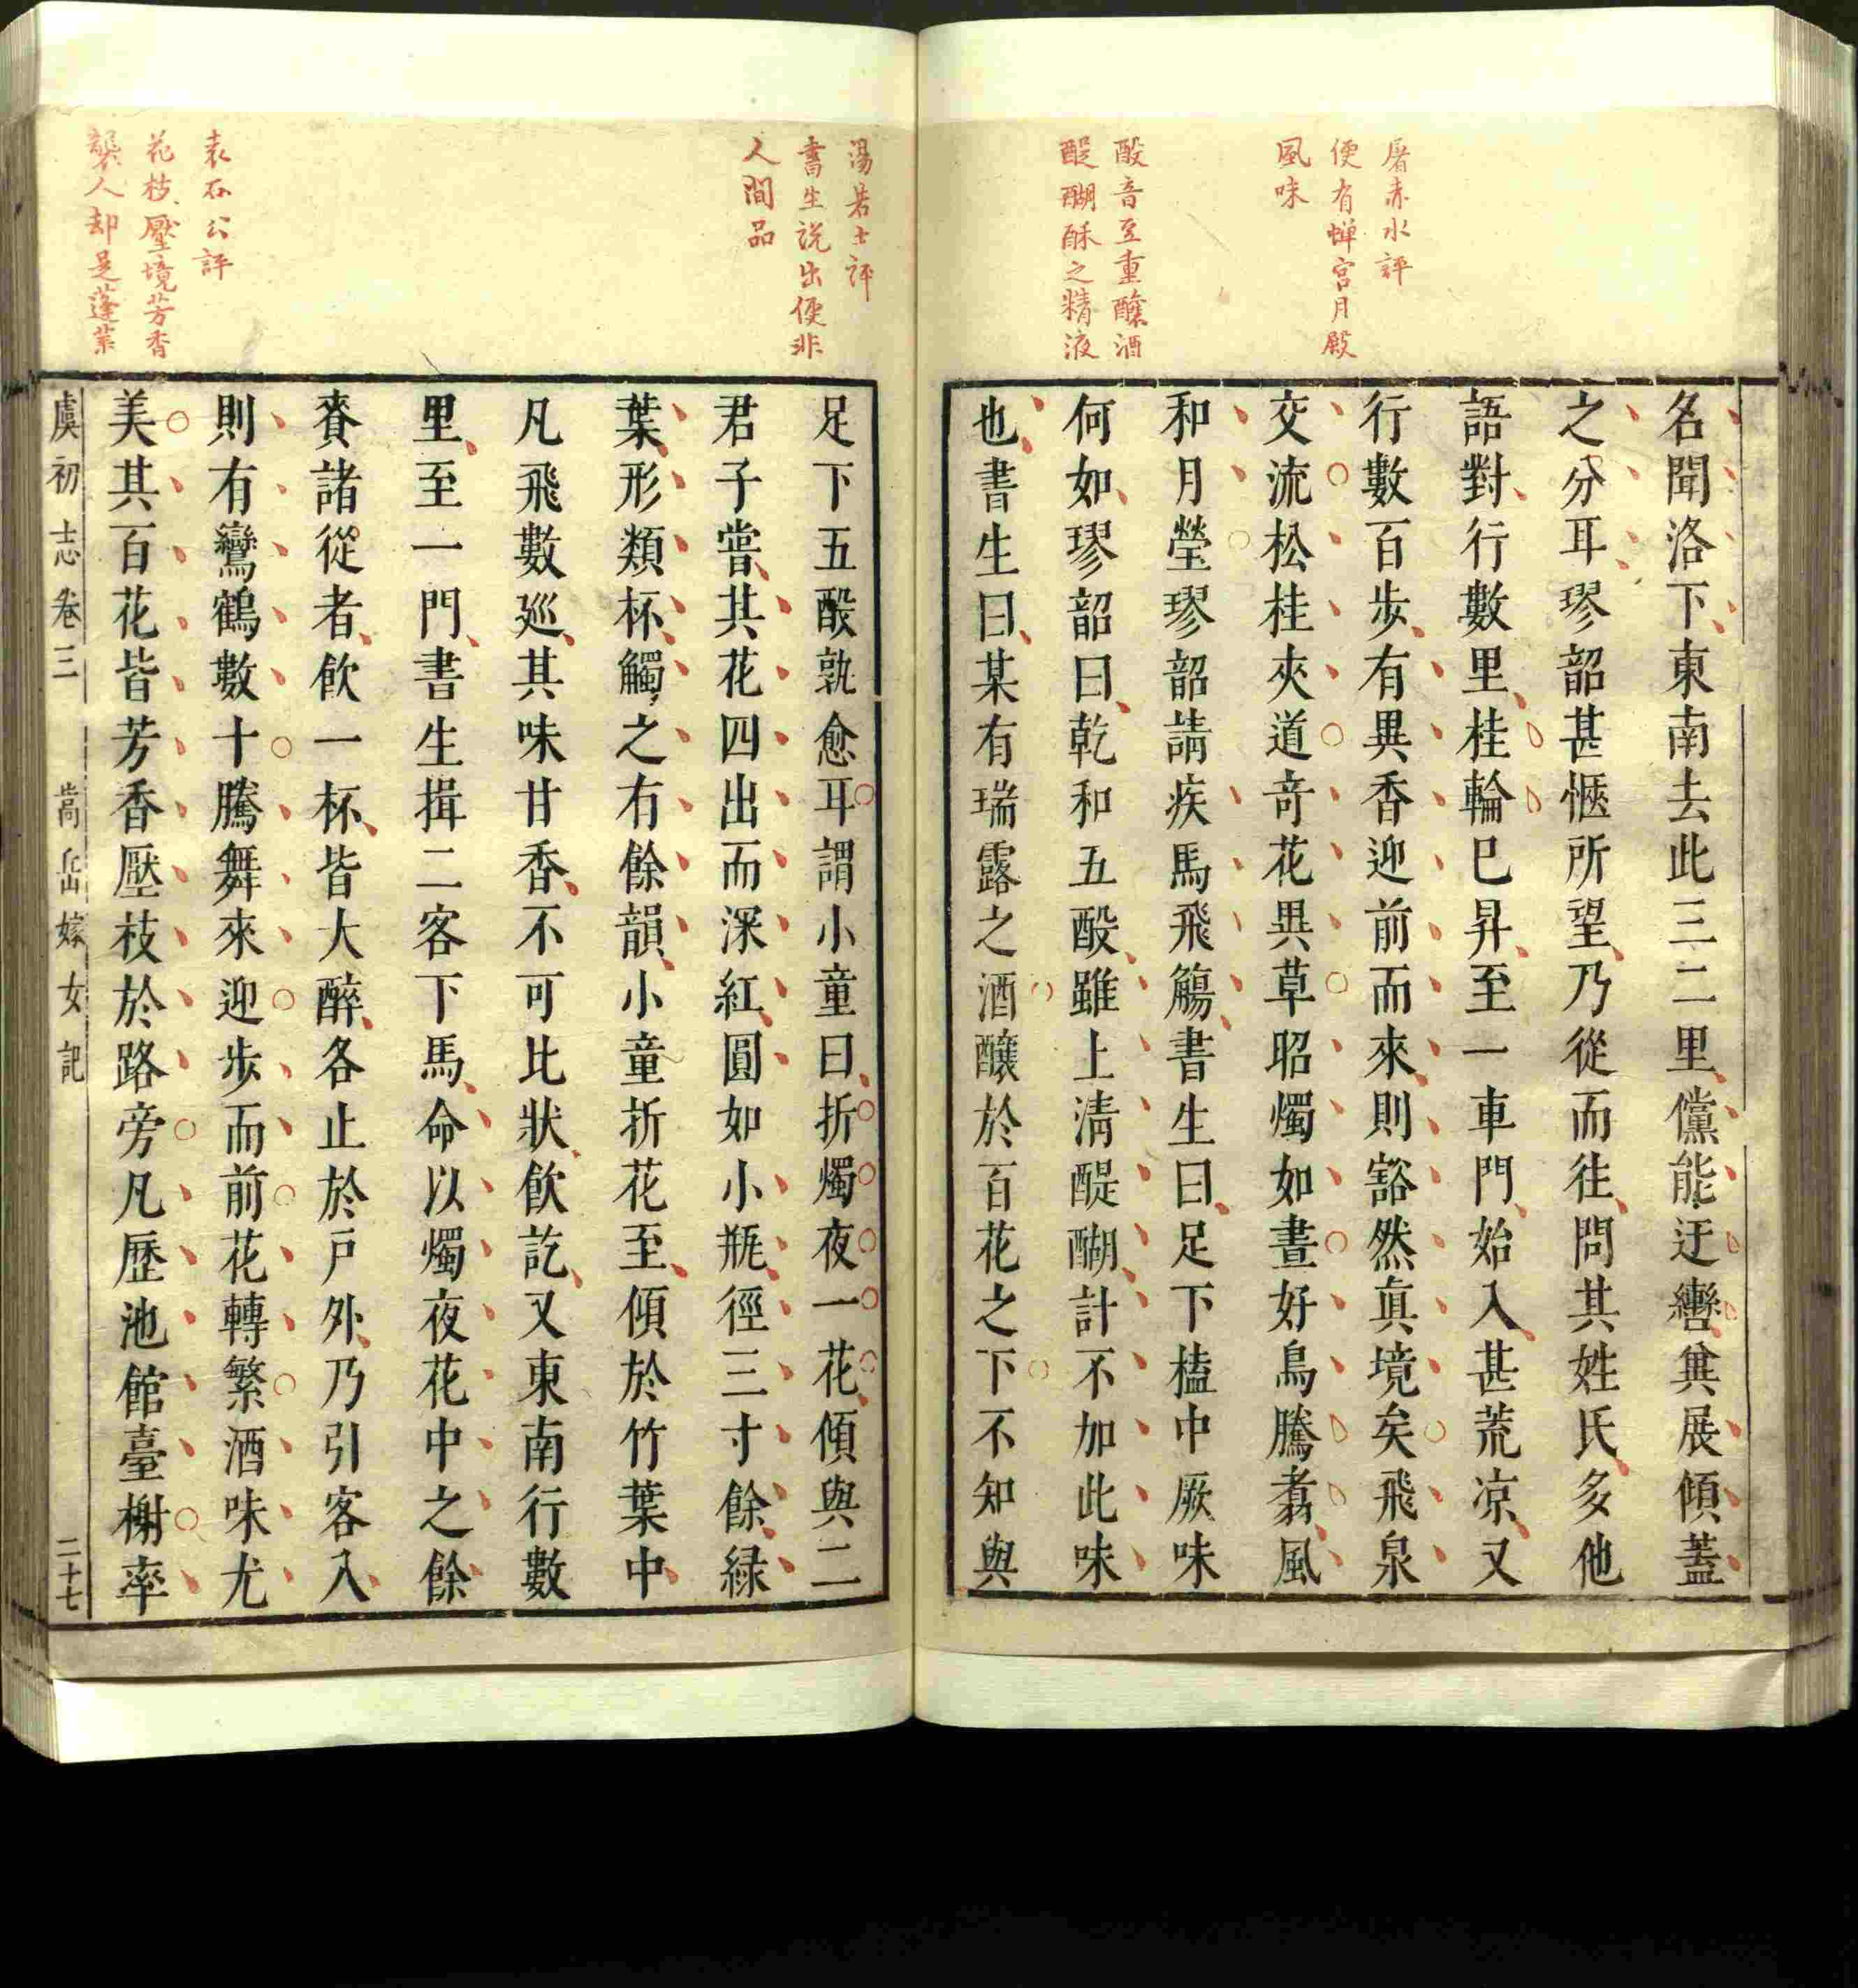 屠赤水評
便有蟬宮月殿
風味
酘音至重釀酒
醍醐酥之精液
名聞洛下東南去此三二里儻能迂轡兾展傾葢
之分耳璆韶甚愜所望乃從而往問其姓氏多他
語對行數里桂輪巳昇至一車門始入甚荒凉又
行數百步有異香迎前而來則豁然眞境矣飛泉
交流松桂夾道竒花異草昭燭如晝好鳥騰翥風
和月瑩璆韶請疾馬飛觴書生曰足下榼中厥味
何如璆韶曰乾和五酘雖上淸醍醐計不加此味
也書生曰某有瑞露之酒釀於百花之下不知與
湯若士評
書生说出便非
人間品
袁石公評
花枝壓境芳香
襲人却是蓬萊
足下五酘孰愈耳謂小童曰折燭夜一花傾與二
君子嘗其花四出而深紅圓如小瓶徑三寸餘緑
葉形類杯觸之有餘韻小童折花至傾於竹葉中
凡飛數巡其味甘香不可比狀飮訖又東南行數
里至一門書生揖二客下馬命以燭夜花中之餘
賚諸從者飮一杯皆大醉各止於戶外乃引客入
則有鸞鶴數十騰舞來迎步而前花轉繁酒味尤
美其百花皆芳香壓枝於路旁凡歷池館臺榭率
虞初志卷三 嵩岳嫁女記 二十七